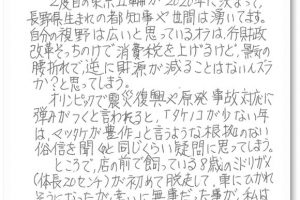 2度目の東京五輪が2020年に決まって、
長野県生まれの都知事や世間は湧いてます。
自分の視野は広いと思ってるオラは、行財政
改革そっちのけで消費税を上げるけど、景気の
腰折れで逆に財源が減ることはないんズラ
か?と思ってしまう。
オリンピックで震災復興や原発事故対応に
弾みがつくと言われると、「タケノコが少ない年
は、マツタケが豊作」と言うような根拠のない
俗信を聞くと同じくらい疑問に思ってしまう。
ところで、店の前で飼っている8歳のミドリガメ
(体長20センチ)が初めて脱走して、車にひかれ
そうになったが、幸いに無事だった事が、私は